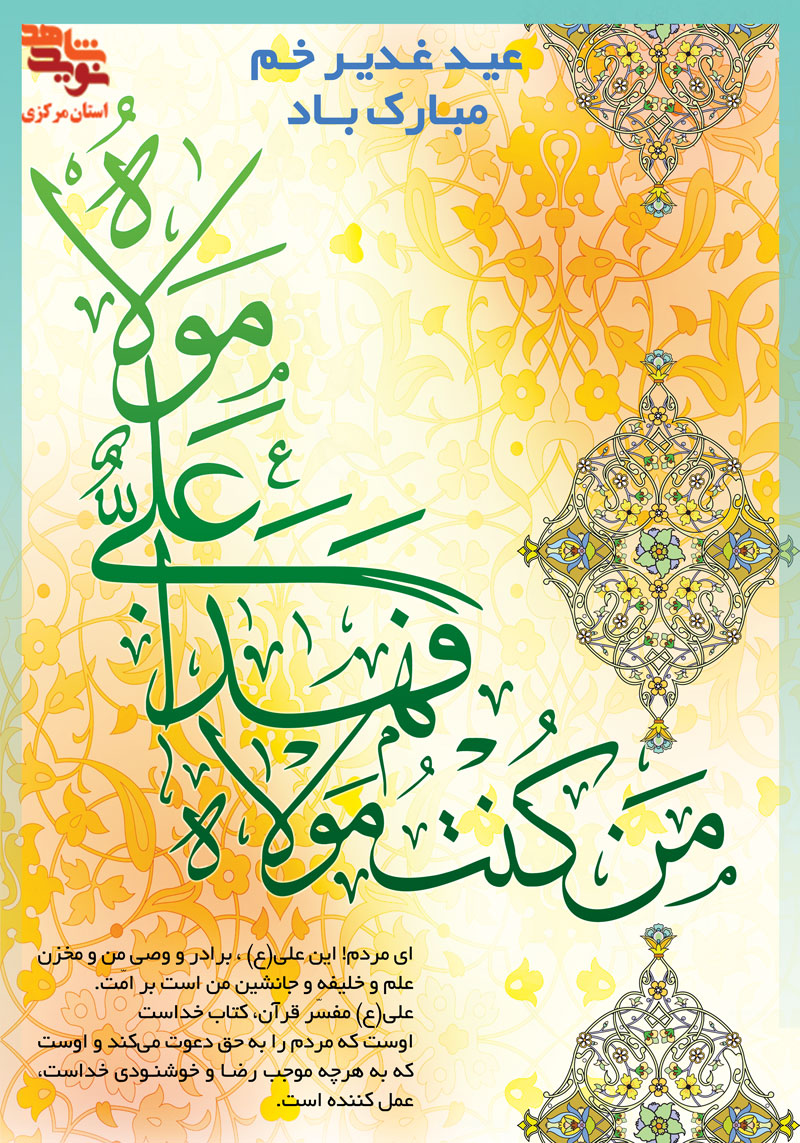 شاهد
نوید
استان مرکزی
عید غدیر خم
مبارک باد
مَن کُنتُ مَولاهُ
فَهذا عَلیٌّ
مَولاهُ
ای مردم! این علی(ع) ، برادر و وصی من و مخزن
علم و خلیفه و جانشین من است بر امّت.
علی(ع) مفسّر قرآن، کتاب خداست
اوست که مردم را به حق دعوت می‌کند و اوست
که به هرچه موجب رضا و خوشنودی خداست،
عمل کننده است.